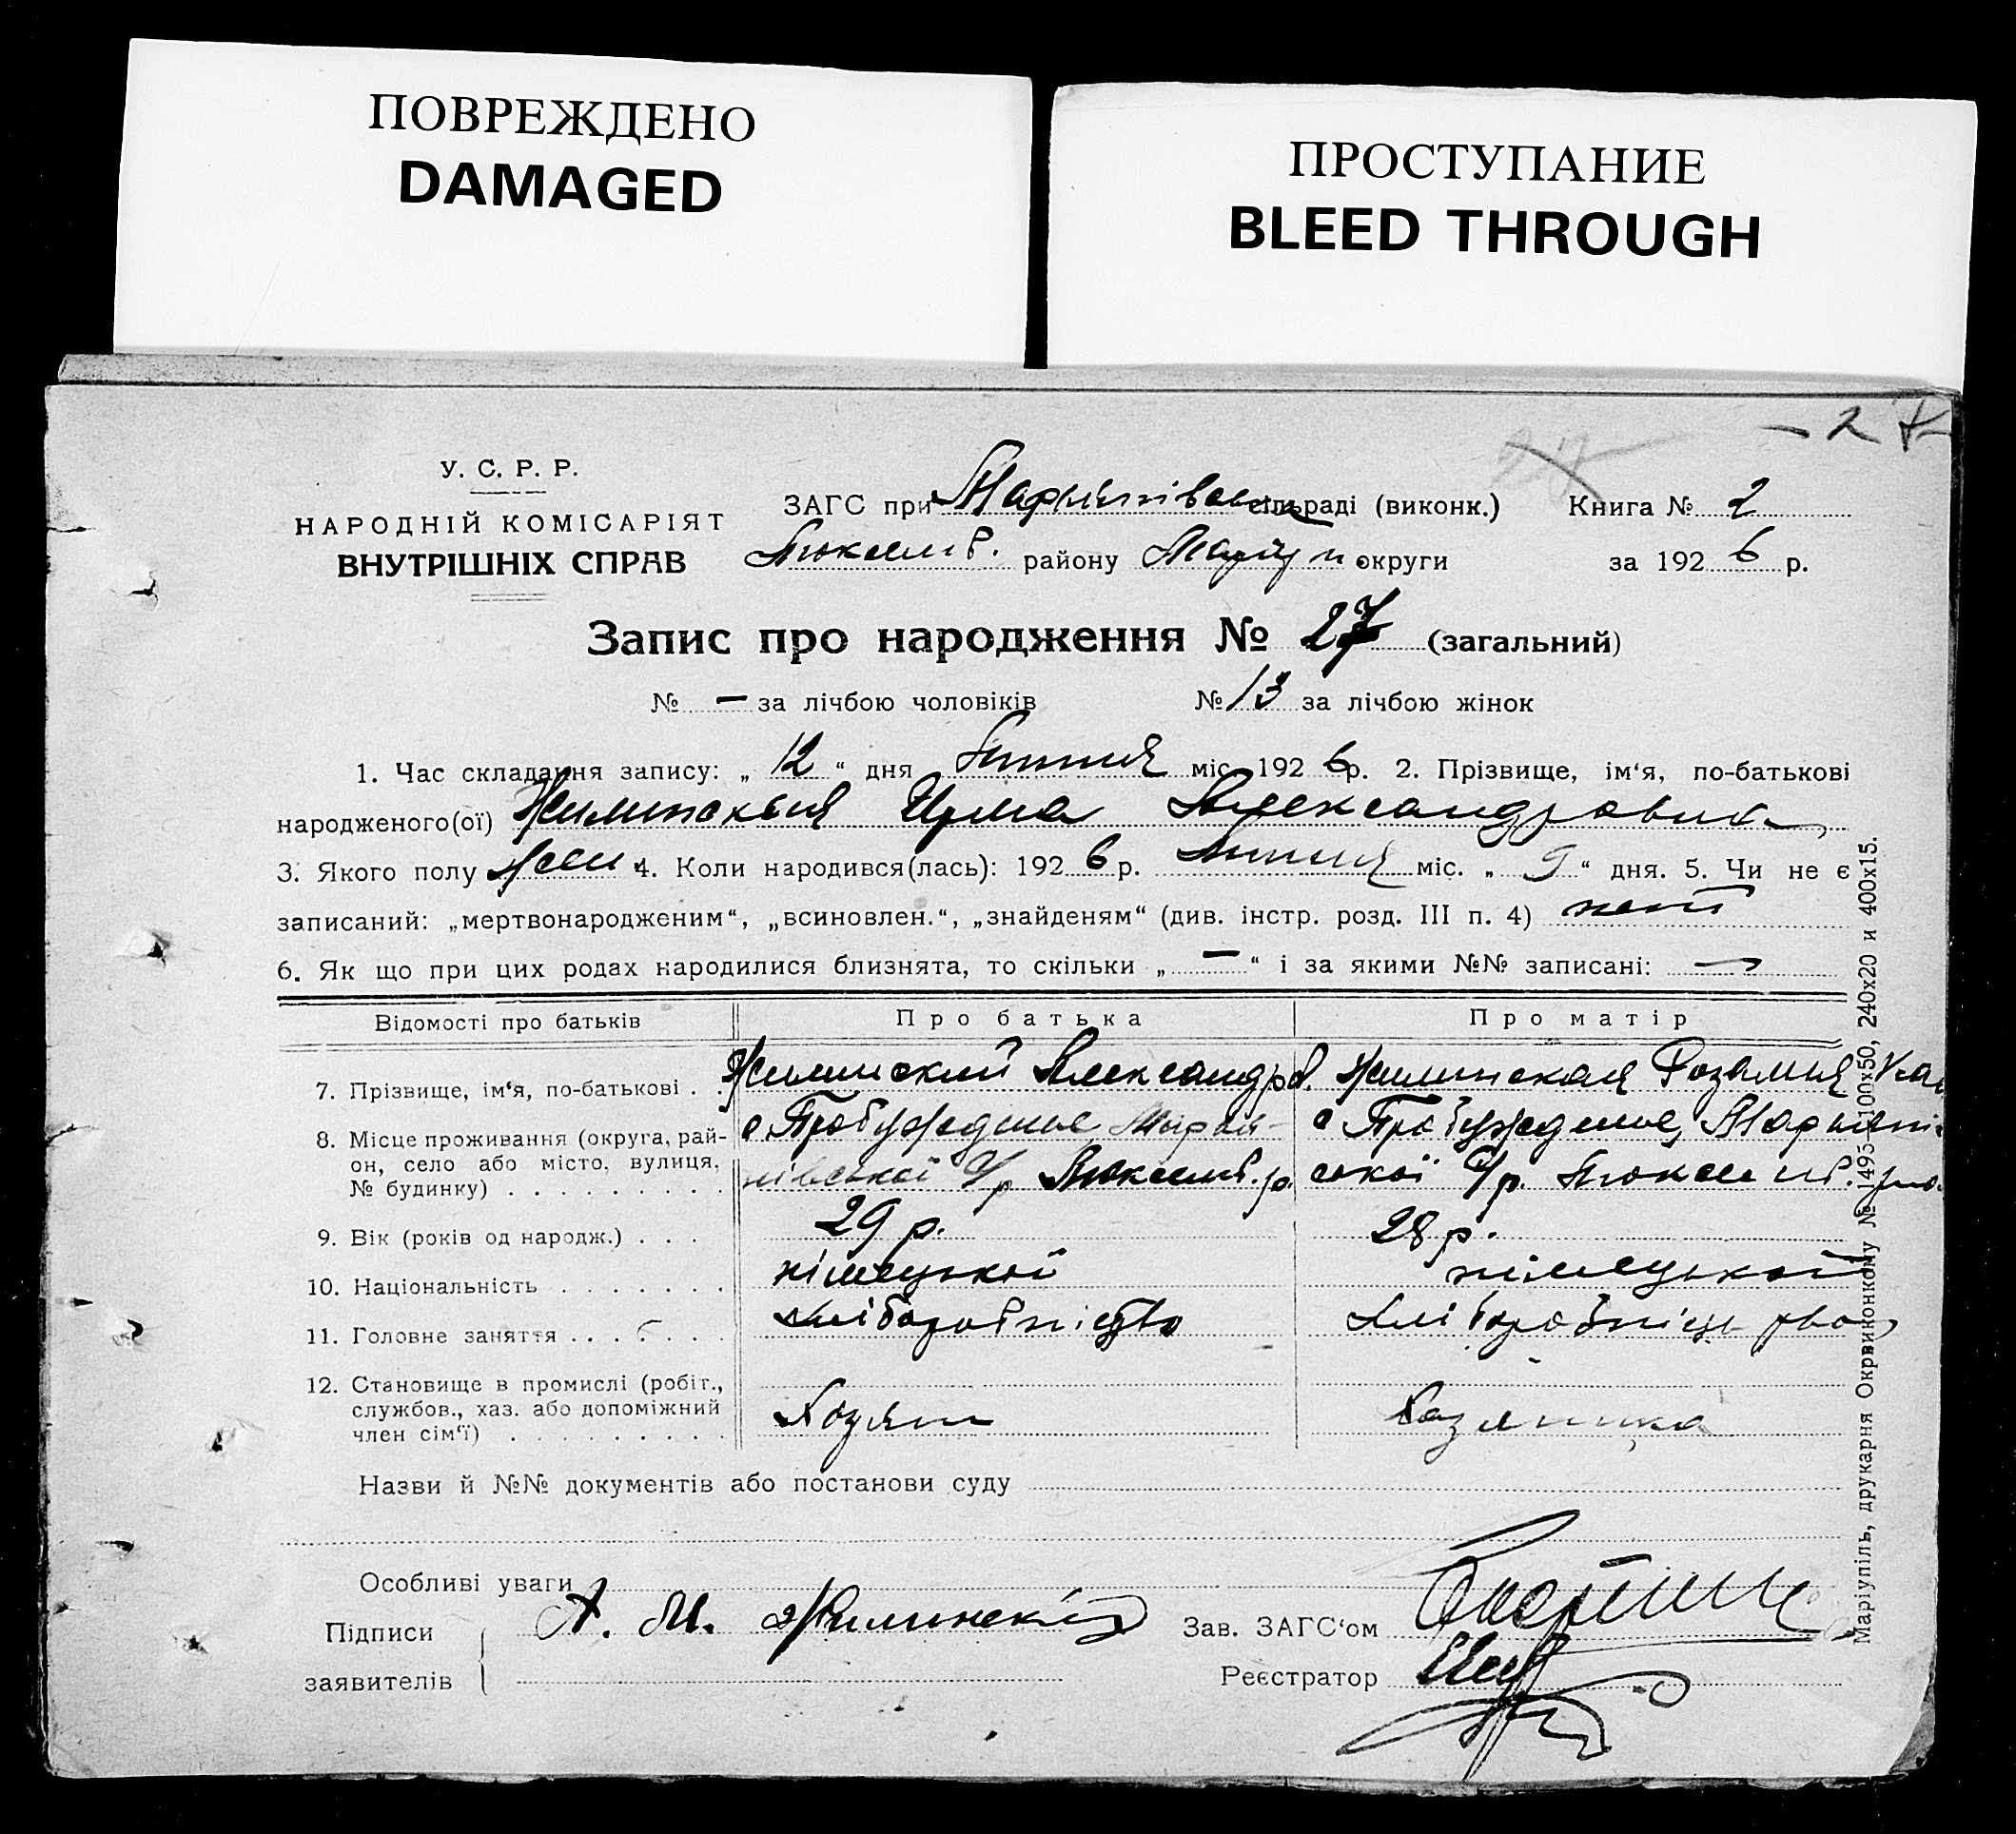 ПОВРЕЖДЕНО
DAMAGED
ПРОСТУПАНИЕ
BLEED THROUGH
- 27
27
У. С. Р. Р.
НАРОДНІЙ КОМІСАРІЯТ
ВНУТРІШНІХ СПРАВ
ЗАГС при сільраді (виконк.) Книга № 2
Люксемб. району Маріуп округи за 1926 р.
Запис про народження № 27 (загальний)
№ — за лічбою чоловіків № 13 за лічбою жінок
1. Час складання запису: „ 12 “ дня міс. 1926 р. 2. Прізвище, ім‘я, по-батькові
народженого(ої) Жилинская Ирма Александровна
3. Якого полу жен 4. Коли народився(лась): 1926 р. міс. „ 9 “ дня. 5. Чи не є
записаний: „мертвонародженим“, „всиновлен.“, „знайденям“ (див. інстр. розд. III п. 4) нет
6. Як що при цих родах народилися близнята, то скільки „ — “ і за якими №№ записані: —
Відомості про батьків Про батька Про матір
7. Прізвище, ім‘я, по-батькові . . Жилинский Александр Жилинская Розалия
8. Місце проживання (округа, рай-
он, село або місто, вулиця,
№ будинку) . . . . . . . . .
с Пробуждение с Пробуждение,
нівської С/р Люксемб. р. ської С/р. Люксемб.
9. Вік (років од народж.) . . . 29 р. 28 р.
10. Національність . . . . . . . німецької німецької
11. Головне заняття . . . . . . хліборобництво
12. Становище в промислі (робіт.,
службов., хаз. або допоміжний
член сім‘ї) . . . . . . . . .
Хозяин Хазяйка
Назви й №№ документів або постанови суду
Особливі уваги
Підписи
заявителів
А. М. Жилинскій
Зав. ЗАГС‘ом
Реєстратор
Маріупіль, друкарня Окрвиконкому № 1495—100х50, 240х20 и 400х15.